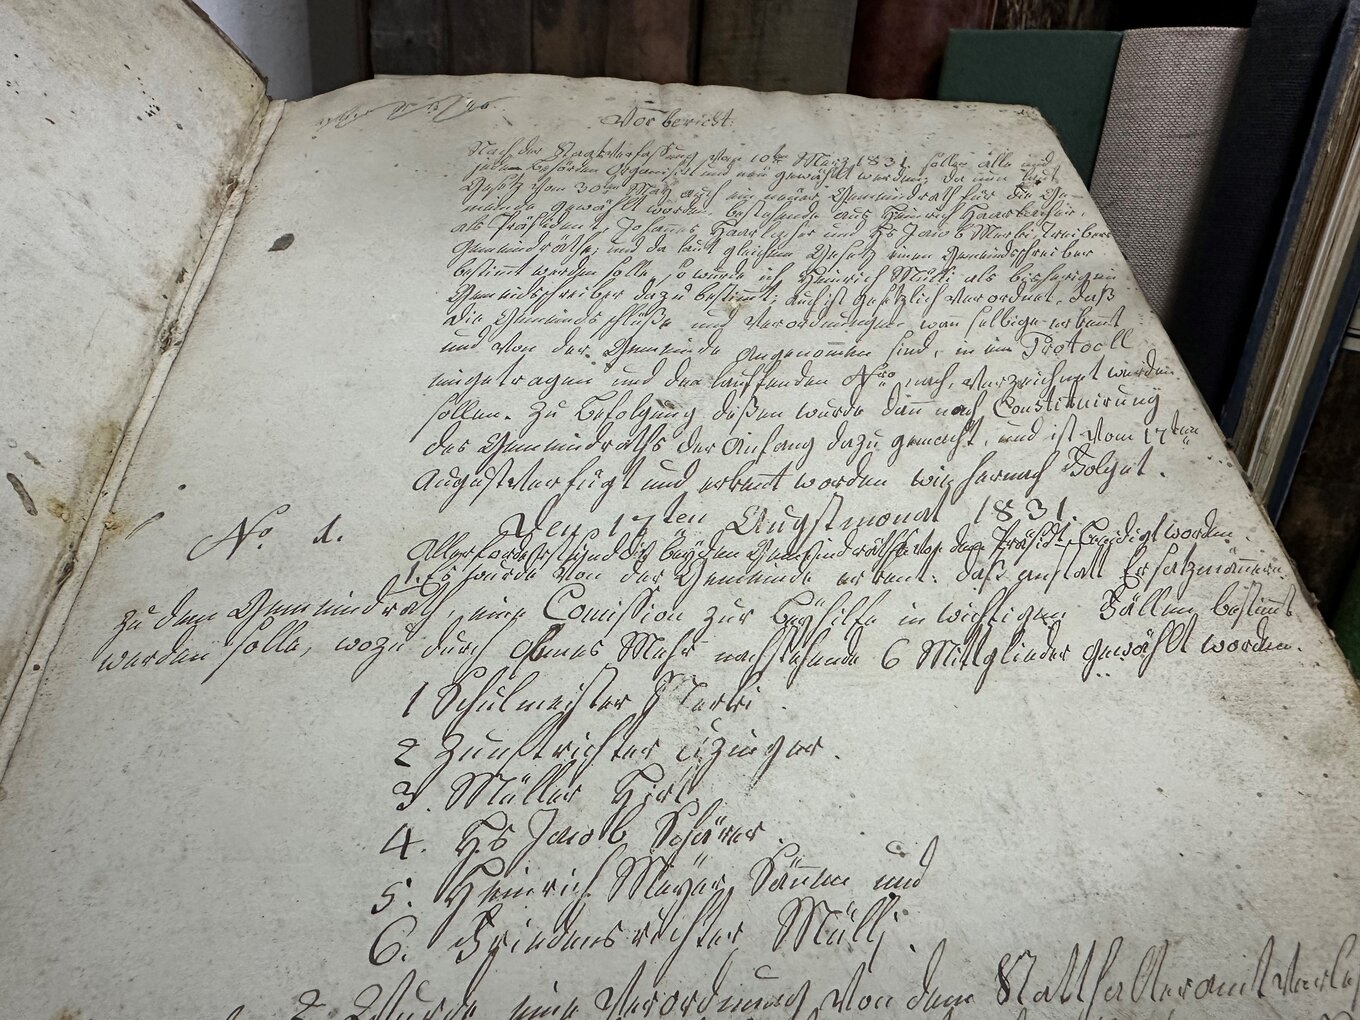 Vorbericht.
Nach der Staatsverfassung vom 10ten März 1831. sollen alle und
jede Behörden Organisirt und neü gewählt werden, da nun laut
Gesetz vom 30ten May auch ein neüer Gemeindrath für die Ge-
meinde gewählt worden, bestehende aus Heinrich
als Präsident, Johannes und Hs Jacob Merki,
Gemeindräthe, und da laut gleichem Gesetz einen Gemeindschreiber
bestimt werden solle, so wurde ich Heinrich Mülli als bisherigen
Gemeindschreiber dazu bestimmt; auch ist gesetzlich verordnet, daß
die Gemeindsschlüße und Verordnungen wan selbige erkennt
und von der Gemeinde angenomen sind, in ein Protocoll
eingetragen und der lauffenden Nro nach, verzeichnet werden
sollen. Zu Befolgung deßen wurde dann nach Constituirung
des Gemeindraths der Anfang dazu gemacht, und ist vom 17ten
August verfügt und erkent worden wie hernach Folget.
Den 17ten Augstmonat 1831.
No. 1. Allervorderst sind die beÿden Gemeindräthe von dem Präsidt. beeidigt worden.
1. Es wurde von der Gemeinde erkent: daß anstatt Ersatzmänern
zu dem Gemeindrath, eine Comission zur Beÿhilfe in wichtigen Fällen bestimt
werden solle, wozu durch offenes Mehr nachstehende 6 Mittglieder gewählt worden.
1 Schulmeister Merki
2 Zunftrichter Uzinger.
3. Müller Hirt
4. Hs Jacob Schärer.
5. Heinrich Meyer, und
6. Friedensrichter Mülli.
2. Wurde eine Verordnung von dem Statthalteramt